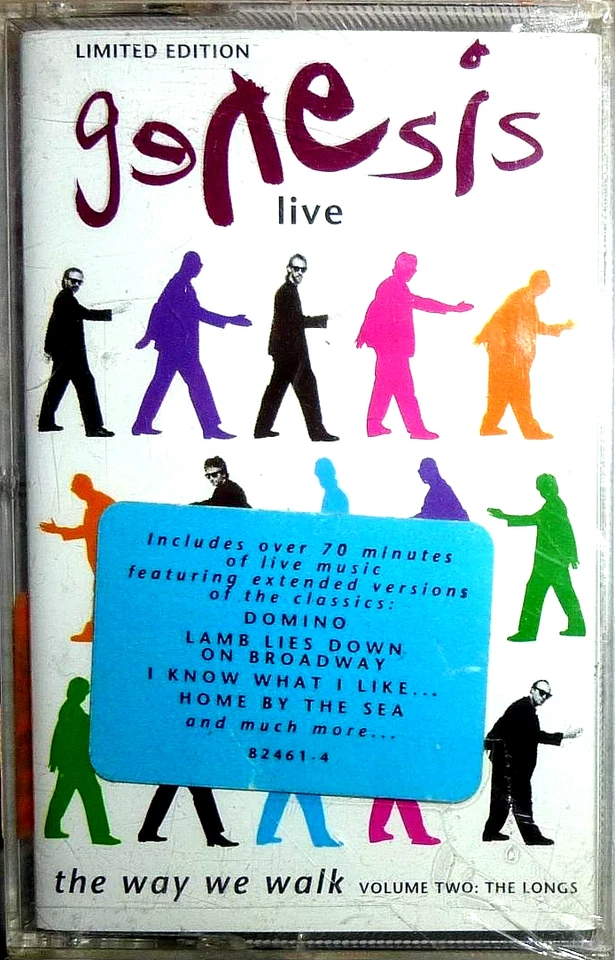 LIMITED EDITION
genesis
live
Includes over 70 minutes
of live music
featuring extended versions
of the classics:
DOMINO
LAMB LIES DOWN
ON BROADWAY
I KNOW WHAT I LIKE...
HOME BY THE SEA
and much more...
82461-4
the way we walk VOLUME TWO: THE LONGS